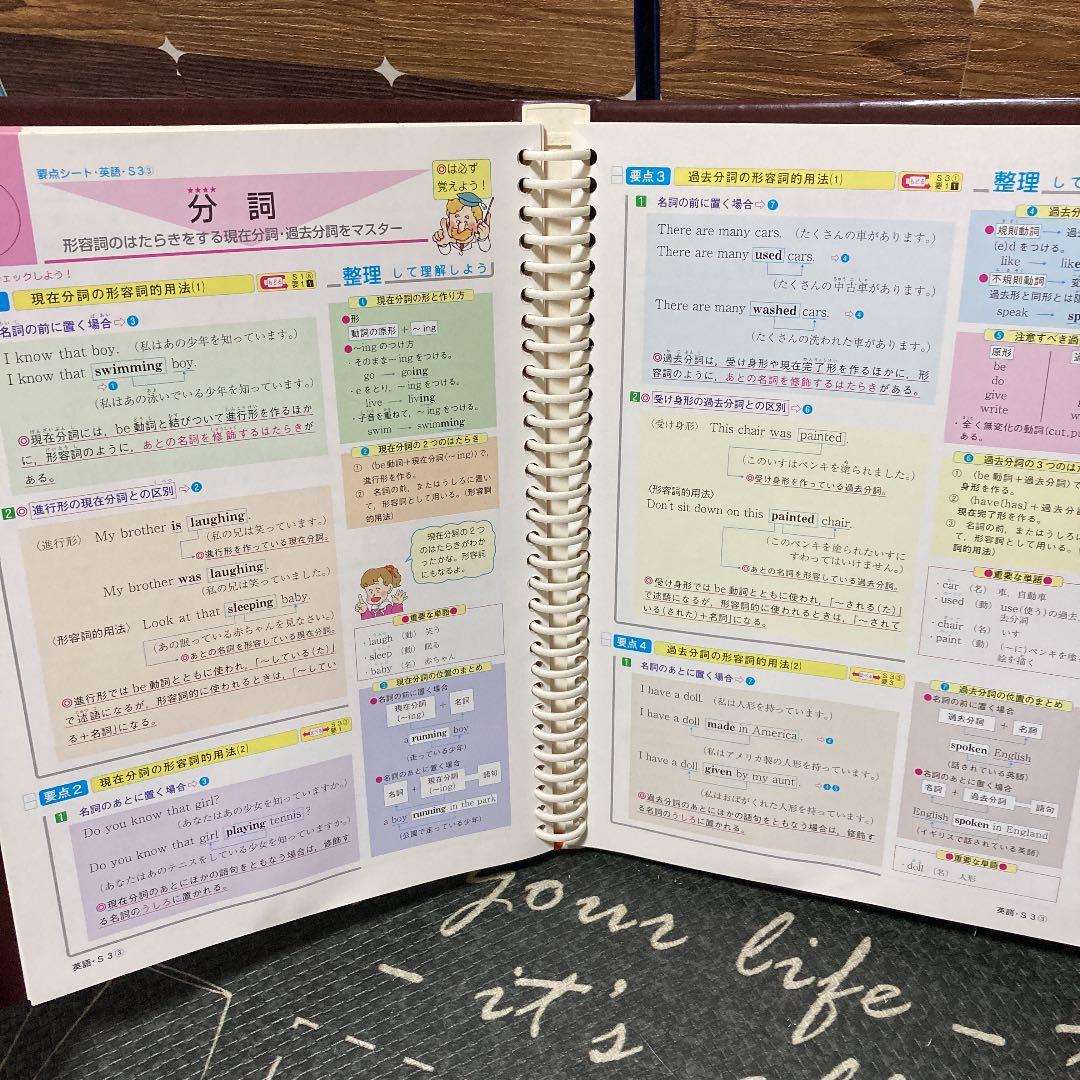 要点シート・英語・S3③
◎は必ず
覚えよう！
★★★★
分詞
形容詞のはたらきをする現在分詞・過去分詞をマスター
ェックしよう！
現在分詞の形容詞的用法(1)
もどる S1⑥ 要1 1
名詞の前に置く場合⇨③
I know that boy. （私はあの少年を知っています。）
I know that swimming boy.
⇨①
（私はあの泳いでいる少年を知っています。）
◎現在分詞には、be動詞と結びついて進行形を作るほか
に、形容詞のように、あとの名詞を修飾するはたらきが
ある。
2 ◎進行形の現在分詞との区別 ⇨②
〈進行形〉 My brother is laughing.
（私の兄は笑っています。）
◎進行形を作っている現在分詞。
My brother was laughing.
（私の兄は笑っていました。）
〈形容詞的用法〉 Look at that sleeping baby.
（あの眠っている赤ちゃんを見なさい。）
◎あとの名詞を形容している現在分詞。
◎進行形ではbe動詞とともに使われ、「〜している(た)」
で述語になるが、形容詞的に使われるときは、「〜してい
る＋名詞」になる。
要点2 現在分詞の形容詞的用法(2)
S3③ 要1
1 名詞のあとに置く場合⇨③
Do you know that girl?
（あなたはあの少女を知っていますか。）
Do you know that girl playing tennis?
（あなたはあのテニスをしている少女を知っていますか。）
◎現在分詞のあとにほかの語句をともなう場合は、修飾す
る名詞のうしろに置かれる。
英語・S3③
整理 して理解しよう
① 現在分詞の形と作り方
●形
動詞の原形 ＋ 〜ing
●〜ingのつけ方
・そのまま〜ingをつける。
go → going
・eをとり、〜ingをつける。
live → living
・子音を重ねて、〜ingをつける。
swim → swimming
② 現在分詞の2つのはたらき
① 〈be動詞＋現在分詞(〜ing)〉で、
進行形を作る。
② 名詞の前、またはうしろに置い
て、形容詞として用いる。(形容詞
的用法)
現在分詞の2つ
のはたらきがわか
ったかな。形容詞
にもなるよ。
●重要な単語●
・laugh （動） 笑う
・sleep （動） 眠る
・baby （名） 赤ちゃん
③ 現在分詞の位置のまとめ
●名詞の前に置く場合
現在分詞(〜ing) ＋ 名詞
a running boy
（走っている少年）
●名詞のあとに置く場合
名詞 ＋ 現在分詞(〜ing) 語句
a boy running in the park
（公園で走っている少年）
要点3 過去分詞の形容詞的用法(1)
もどる S3① 要1 1
1 名詞の前に置く場合⇨⑦
There are many cars. （たくさんの車があります。）
There are many used cars. ⇨④
（たくさんの中古車があります。）
There are many washed cars. ⇨④
（たくさんの洗われた車があります。）
◎過去分詞は、受け身形や現在完了形を作るほかに、形
容詞のように、あとの名詞を修飾するはたらきがある。
2 ◎受け身形の過去分詞との区別 ⇨⑥
〈受け身形〉 This chair was painted.
（このいすはペンキを塗られました。）
◎受け身形を作っている過去分詞。
〈形容詞的用法〉
Don't sit down on this painted chair.
（このペンキを塗られたいすに
すわってはいけません。）
◎あとの名詞を形容している過去分詞。
◎受け身形ではbe動詞とともに使われ、「〜される(た)」
で述語になるが、形容詞的に使われるときは、「〜されて
いる(された)＋名詞」になる。
要点4 過去分詞の形容詞的用法(2)
S3③ 要3
1 名詞のあとに置く場合⇨⑦
I have a doll. （私は人形を持っています。）
I have a doll made in America. ⇨④
（私はアメリカ製の人形を持っています。）
I have a doll given by my aunt. ⇨④⑤
（私はおばがくれた人形を持っています。）
◎過去分詞のあとにほかの語句をともなう場合は、修飾す
る名詞のうしろに置かれる。
整理 して
④ 過去分
●規則動詞 → 過
(e)dをつける。
like → like
●不規則動詞 → 変
過去形と同形とは限
speak → spo
⑤ 注意すべき過
原形
be
do
give
write
・全く無変化の動詞(cut, pu
ある。
⑥ 過去分詞の3つのは
① 〈be動詞＋過去分詞〉で
身形を作る。
② 〈have(has)＋過去分
現在完了形を作る。
③ 名詞の前、またはうしろ
て、形容詞として用いる。
詞的用法)
●重要な単語●
・car （名） 車，自動車
・used （動） use(使う)の過
去分詞
・chair （名） いす
・paint （動） (〜に)ペンキを塗
絵を描く
⑦ 過去分詞の位置のまとめ
●名詞の前に置く場合
過去分詞 ＋ 名詞
spoken English
（話されている英語）
●名詞のあとに置く場合
名詞 ＋ 過去分詞 語句
English spoken in England
（イギリスで話されている英語）
●重要な単語●
・doll （名） 人形
英語・S3③
your life
it's